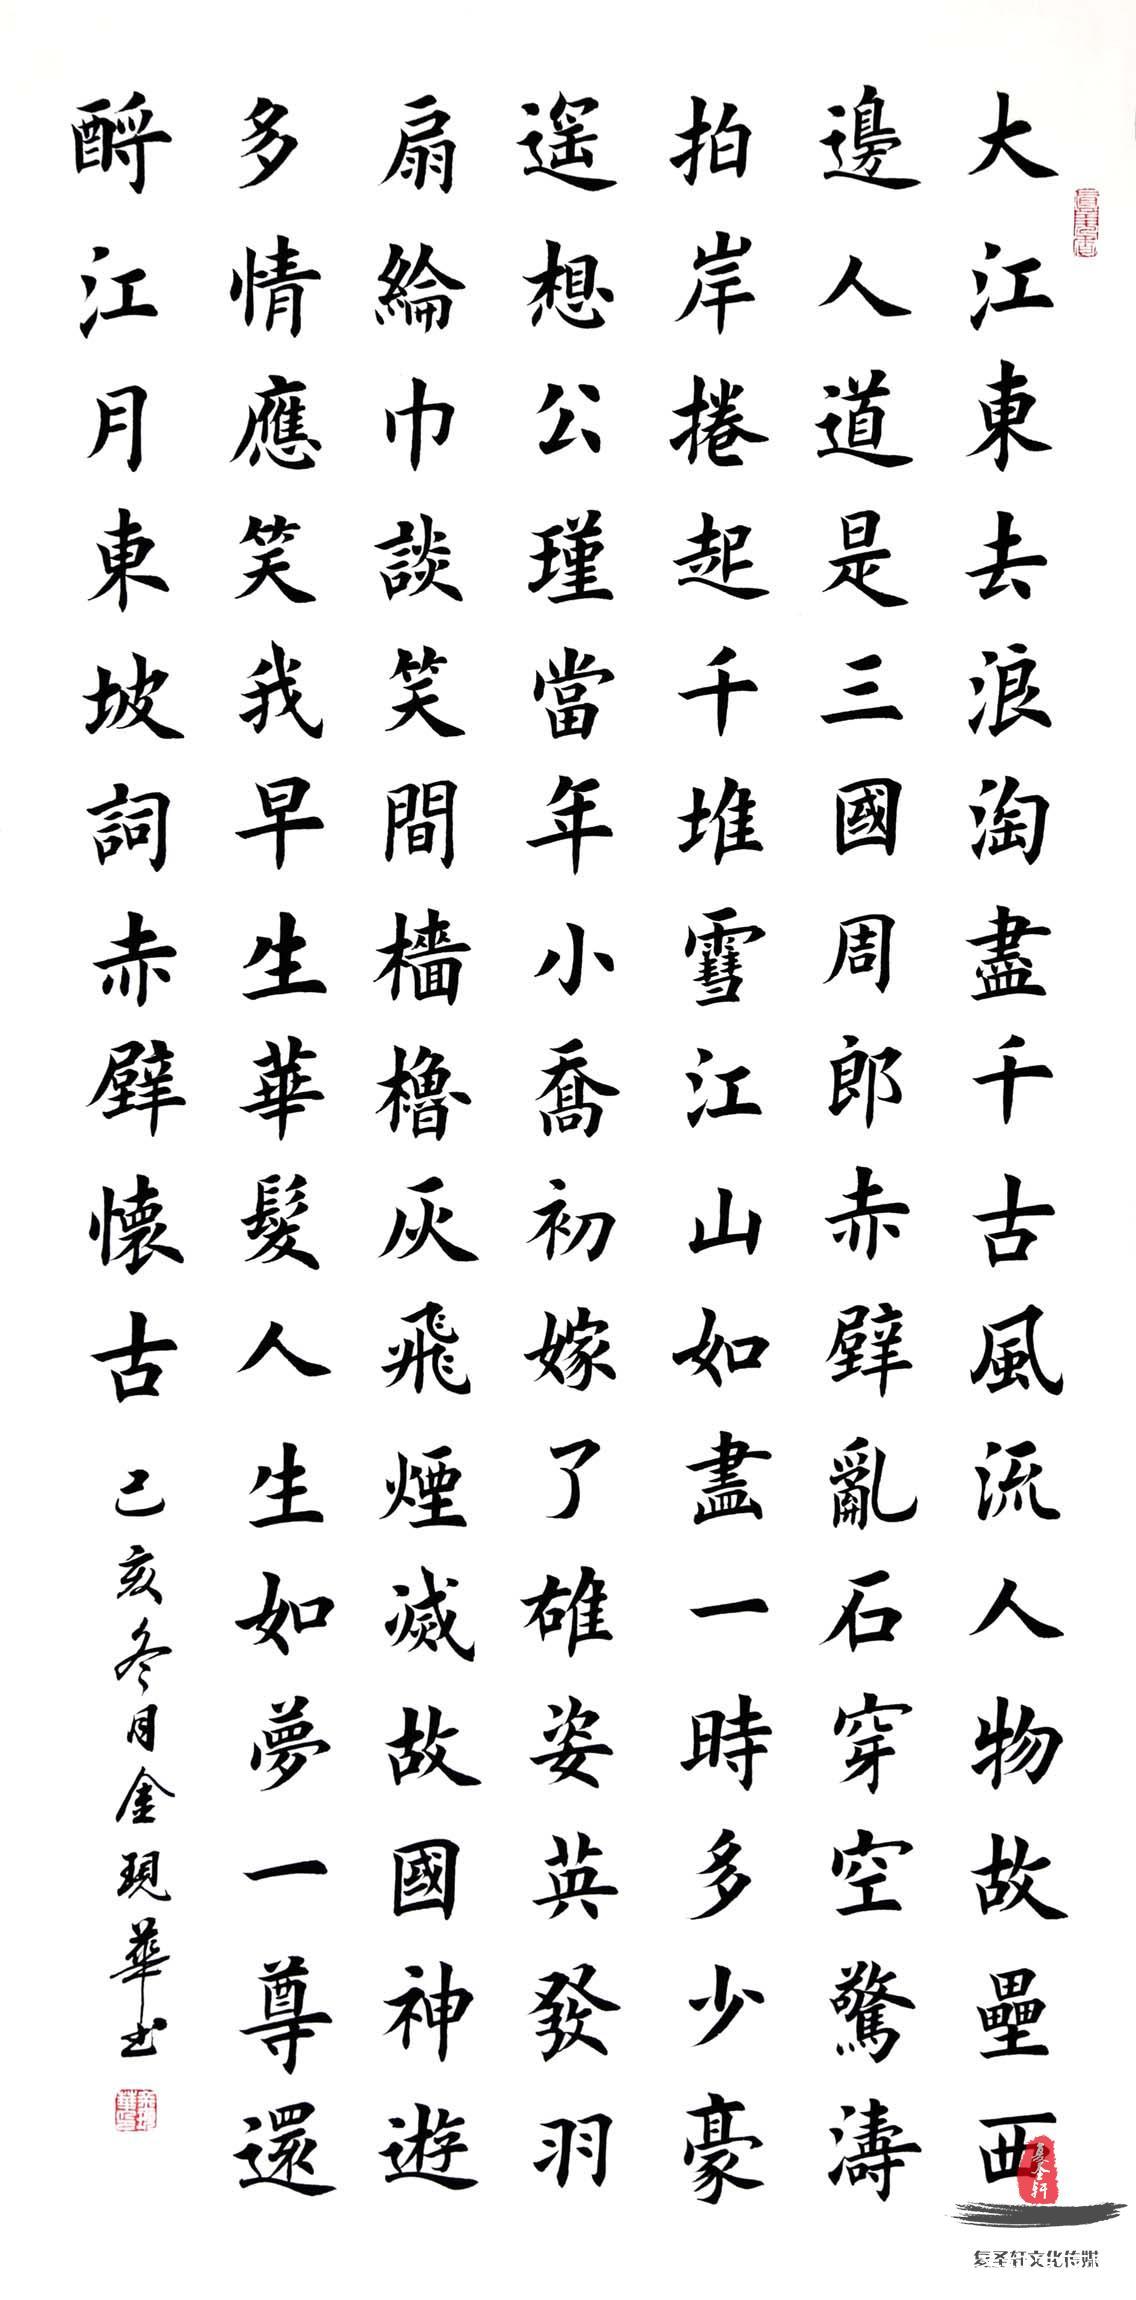 大江東去浪淘盡千古風流人物故壘西
邊人道是三國周郎赤壁亂石穿空驚濤
拍岸捲起千堆雪江山如畫一時多少豪
遥想公瑾當年小喬初嫁了雄姿英發羽
扇綸巾談笑間檣櫓灰飛煙滅故國神遊
多情應笑我早生華髮人生如夢一尊還
酹江月東坡詞赤壁懷古 己亥冬月金現華书
复圣轩
复圣轩文化传媒